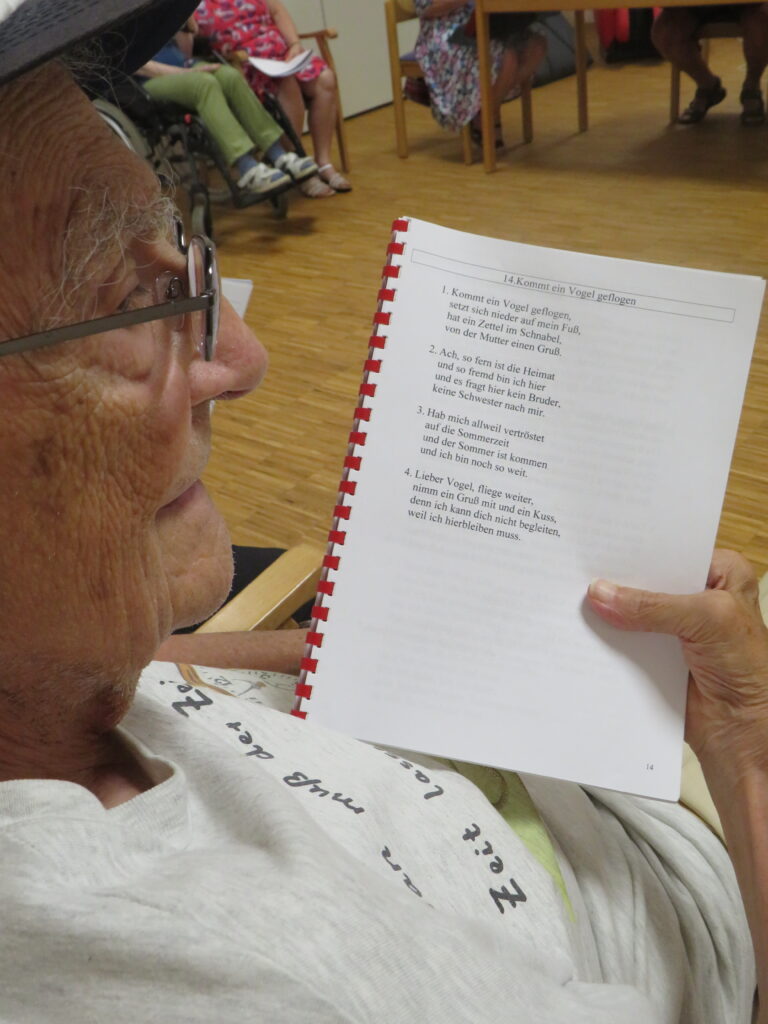 14.Kommt ein Vogel geflogen
1. Kommt ein Vogel geflogen,
setzt sich nieder auf mein Fuß,
hat ein Zettel im Schnabel,
von der Mutter einen Gruß.
2. Ach, so fern ist die Heimat
und so fremd bin ich hier
und es fragt hier kein Bruder,
keine Schwester nach mir.
3. Hab mich allweil vertröstet
auf die Sommerzeit
und der Sommer ist kommen
und ich bin noch so weit.
4. Lieber Vogel, fliege weiter,
nimm ein Gruß mit und ein Kuss,
denn ich kann dich nicht begleiten,
weil ich hierbleiben muss.
14
muß der Zei
Zeit